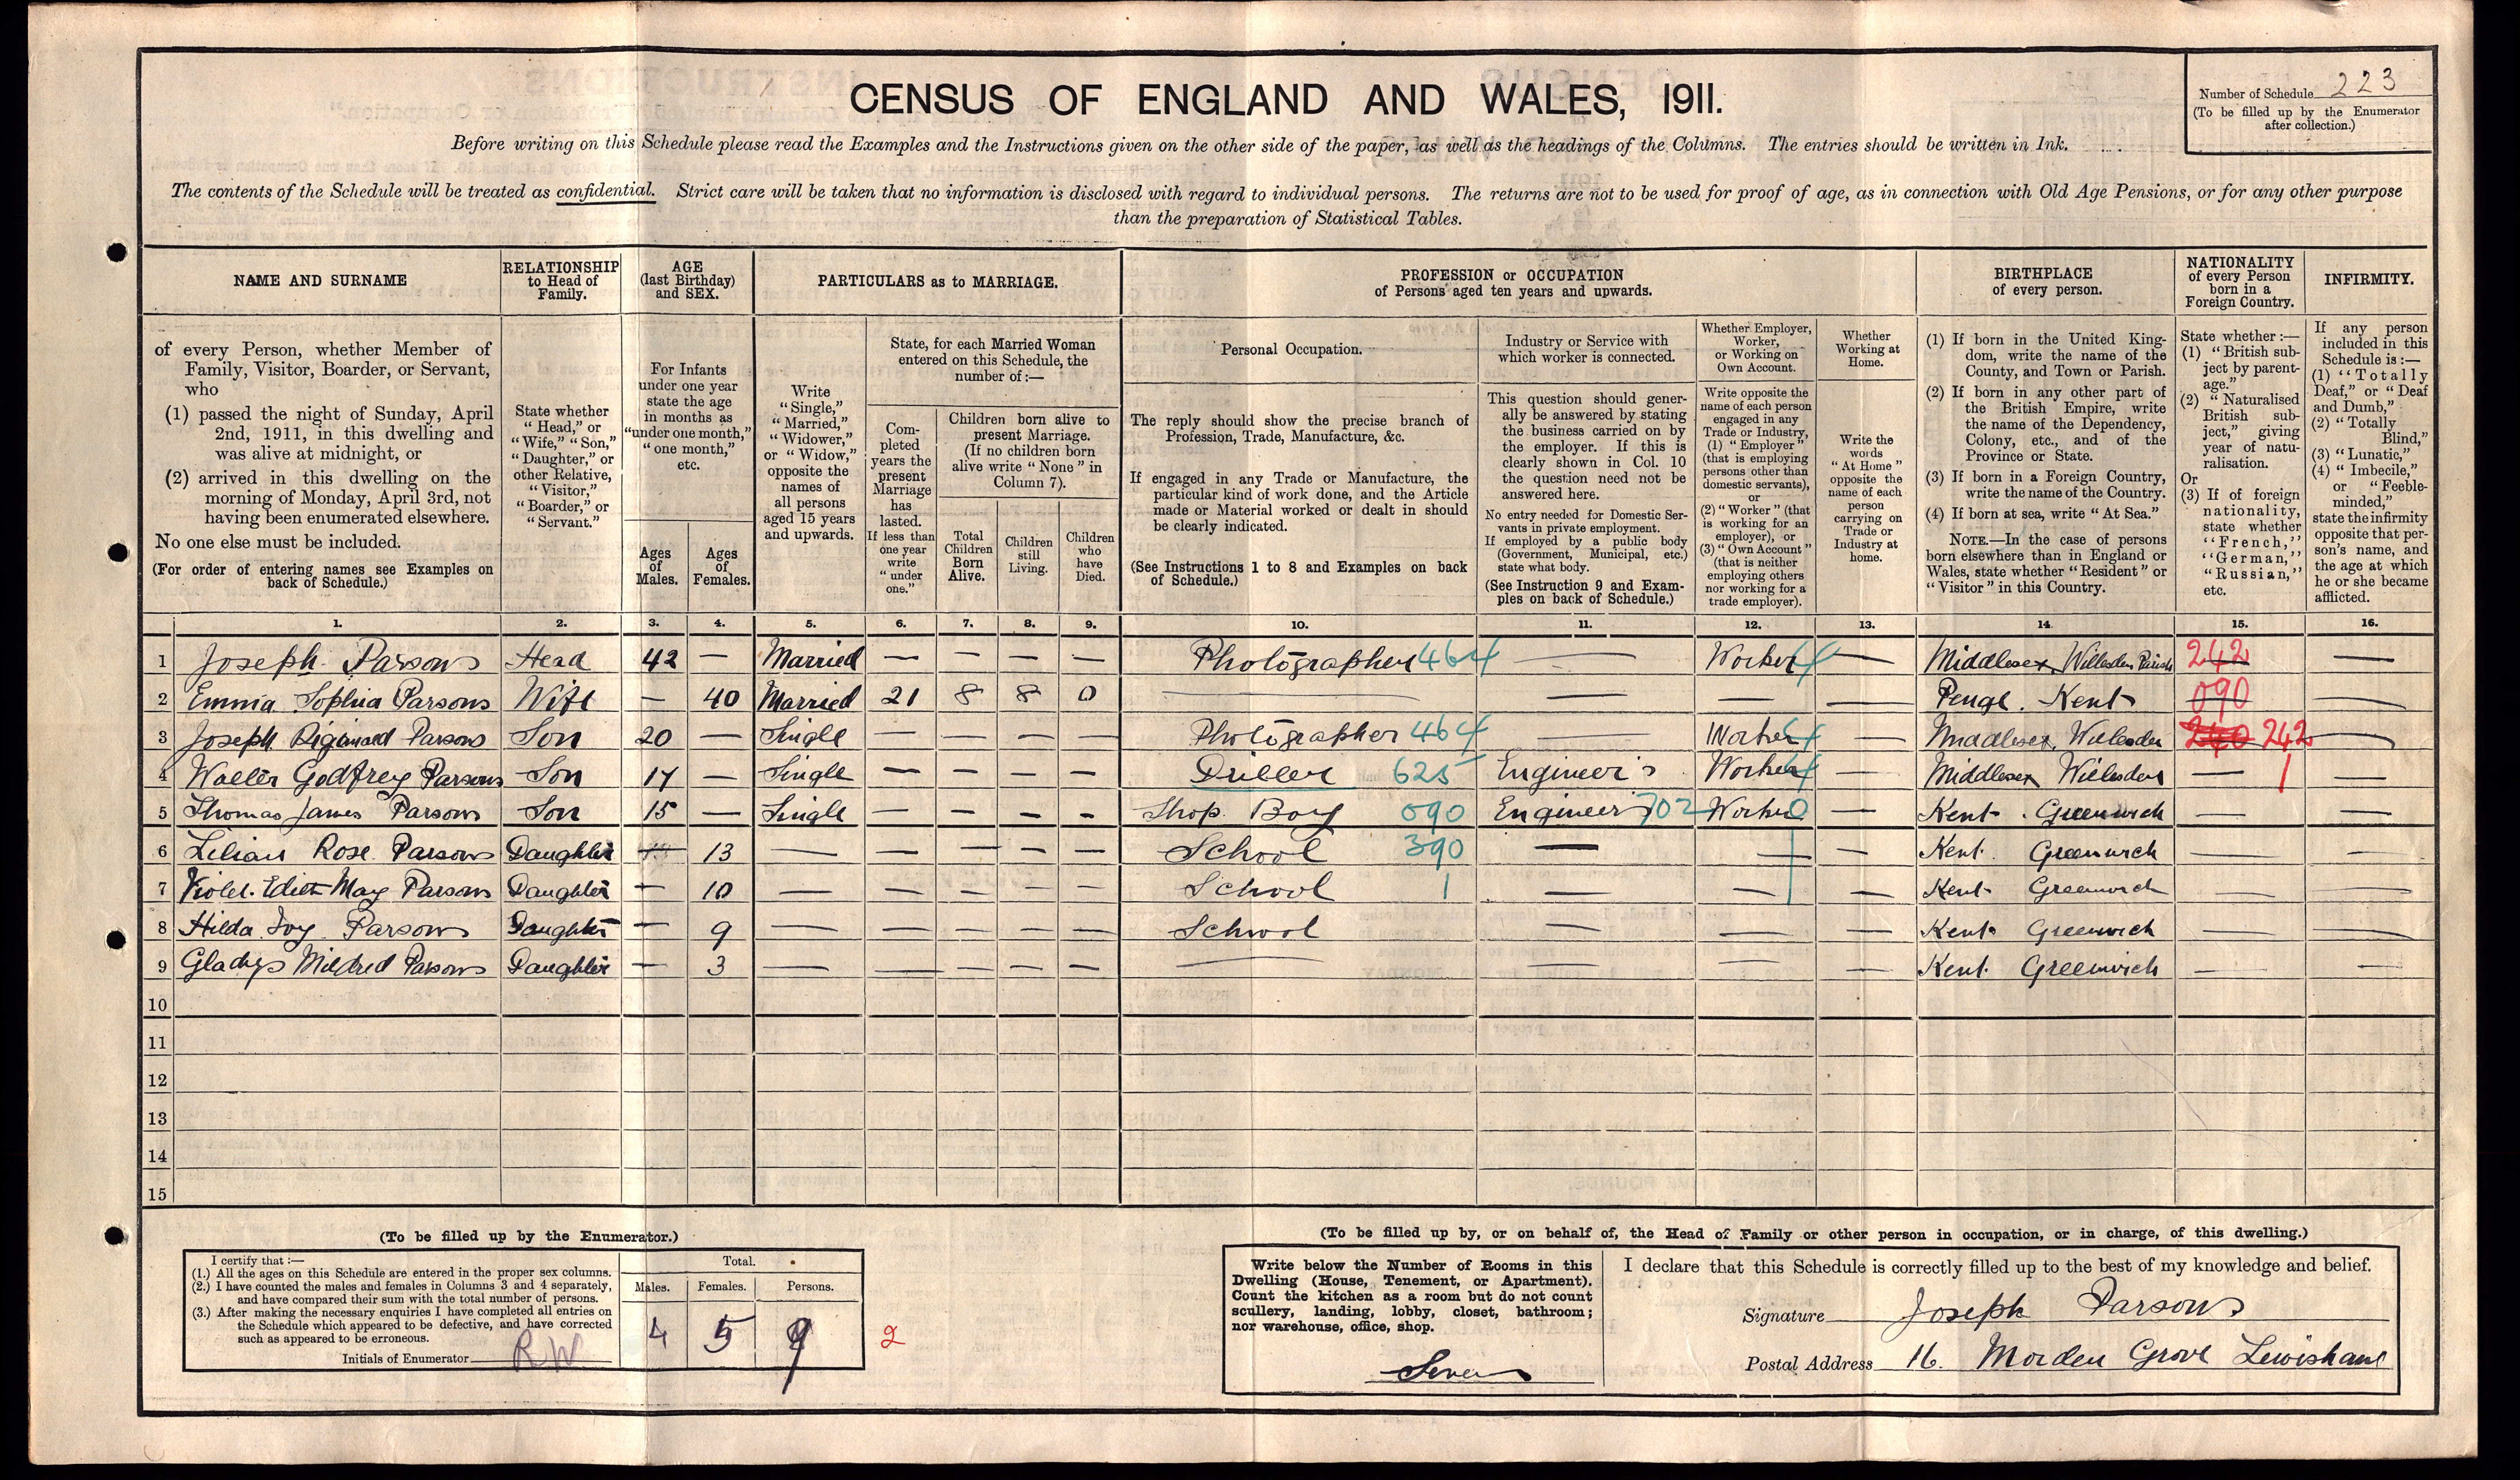 CENSUS OF ENGLAND AND WALES, 1911.
Number of Schedule 223
(To be filled up by the Enumerator
after collection.)
Before writing on this Schedule please read the Examples and the Instructions given on the other side of the paper, as well as the headings of the Columns. The entries should be written in Ink.
The contents of the Schedule will be treated as confidential. Strict care will be taken that no information is disclosed with regard to individual persons. The returns are not to be used for proof of age, as in connection with Old Age Pensions, or for any other purpose
than the preparation of Statistical Tables.
NAME AND SURNAME
of every Person, whether Member of
Family, Visitor, Boarder, or Servant,
who
(1) passed the night of Sunday, April
2nd, 1911, in this dwelling and
was alive at midnight, or
(2) arrived in this dwelling on the
morning of Monday, April 3rd, not
having been enumerated elsewhere.
No one else must be included.
(For order of entering names see Examples on
back of Schedule.)
RELATIONSHIP
to Head of
Family.
State whether
"Head," or
"Wife," "Son,"
"Daughter," or
other Relative,
"Visitor,"
"Boarder," or
"Servant."
AGE
(last Birthday)
and SEX.
For Infants
under one year
state the age
in months as
"under one month,"
"one month,"
etc.
Ages
of
Males.
Ages
of
Females.
PARTICULARS as to MARRIAGE.
Write
"Single,"
"Married,"
"Widower,"
or "Widow,"
opposite the
names of
all persons
aged 15 years
and upwards.
State, for each Married Woman
entered on this Schedule, the
number of:—
Com-
pleted
years the
present
Marriage
has
lasted.
If less than
one year
write
"under
one."
Children born alive to
present Marriage.
(If no children born
alive write "None" in
Column 7).
Total
Children
Born
Alive.
Children
still
Living.
Children
who
have
Died.
PROFESSION or OCCUPATION
of Persons aged ten years and upwards.
Personal Occupation.
The reply should show the precise branch of
Profession, Trade, Manufacture, &c.
If engaged in any Trade or Manufacture, the
particular kind of work done, and the Article
made or Material worked or dealt in should
be clearly indicated.
(See Instructions 1 to 8 and Examples on back
of Schedule.)
Industry or Service with
which worker is connected.
This question should gener-
ally be answered by stating
the business carried on by
the employer. If this is
clearly shown in Col. 10
the question need not be
answered here.
No entry needed for Domestic Ser-
vants in private employment.
If employed by a public body
(Government, Municipal, etc.)
state what body.
(See Instruction 9 and Exam-
ples on back of Schedule.)
Whether Employer,
Worker,
or Working on
Own Account.
Write opposite the
name of each person
engaged in any
Trade or Industry,
(1) "Employer"
(that is employing
persons other than
domestic servants),
or
(2) "Worker" (that
is working for an
employer), or
(3) "Own Account"
(that is neither
employing others
nor working for a
trade employer).
Whether
Working at
Home.
Write the
words
"At Home"
opposite the
name of each
person
carrying on
Trade or
Industry at
home.
BIRTHPLACE
of every person.
(1) If born in the United King-
dom, write the name of the
County, and Town or Parish.
(2) If born in any other part of
the British Empire, write
the name of the Dependency,
Colony, etc., and of the
Province or State.
(3) If born in a Foreign Country,
write the name of the Country.
(4) If born at sea, write "At Sea."
NOTE.—In the case of persons
born elsewhere than in England or
Wales, state whether "Resident" or
"Visitor" in this Country.
NATIONALITY
of every Person
born in a
Foreign Country.
State whether:—
(1) "British sub-
ject by parent-
age."
(2) "Naturalised
British sub-
ject," giving
year of natu-
ralisation.
Or
(3) If of foreign
nationality,
state whether
"French,"
"German,"
"Russian,"
etc.
INFIRMITY.
If any person
included in this
Schedule is:—
(1) "Totally
Deaf," or "Deaf
and Dumb,"
(2) "Totally
Blind,"
(3) "Lunatic,"
(4) "Imbecile,"
or "Feeble-
minded,"
state the infirmity
opposite that per-
son's name, and
the age at which
he or she became
afflicted.
1. 2. 3. 4. 5. 6. 7. 8. 9. 10. 11. 12. 13. 14. 15. 16.
1 Joseph Parsons Head 42 — Married — — — — Photographer 464 — Worker — Middlesex Willesden Parish 242 —
2 Emma Sophia Parsons Wife — 40 Married 21 8 8 0 — — — — Penge. Kent 090 —
3 Joseph Riginaed Parsons Son 20 — Single — — — — Photographer 464 — Worker — Middlesex. Willesden 240 242 —
4 Walter Godfrey Parsons Son 17 — Single — — — — Driller 625 Engineer's Worker — Middlesex Willesden — 1 —
5 Thomas James Parsons Son 15 — Single — — — — Shop Boy 090 Engineer 702 Worker 0 — Kent. Greenwich — —
6 Lilian Rose Parsons Daughter 13 — — — — — School 390 — — — Kent. Greenwich — —
7 Violet Edith May Parsons Daughter — 10 — — — — — School 1 — — — Kent Greenwich — —
8 Hilda Ivy Parsons Daughter — 9 — — — — — School — — — Kent Greenwich — —
9 Gladys Mildred Parsons Daughter — 3 — — — — — — — — — Kent Greenwich — —
10
11
12
13
14
15
(To be filled up by the Enumerator.)
I certify that:—
(1.) All the ages on this Schedule are entered in the proper sex columns.
(2.) I have counted the males and females in Columns 3 and 4 separately,
and have compared their sum with the total number of persons.
(3.) After making the necessary enquiries I have completed all entries on
the Schedule which appeared to be defective, and have corrected
such as appeared to be erroneous.
Initials of Enumerator RW
Total.
Males. Females. Persons.
4 5 9 2
(To be filled up by, or on behalf of, the Head of Family or other person in occupation, or in charge, of this dwelling.)
Write below the Number of Rooms in this
Dwelling (House, Tenement, or Apartment).
Count the kitchen as a room but do not count
scullery, landing, lobby, closet, bathroom;
nor warehouse, office, shop.
Seven
I declare that this Schedule is correctly filled up to the best of my knowledge and belief.
Signature Joseph Parsons
Postal Address 16. Morden Grove Lewisham